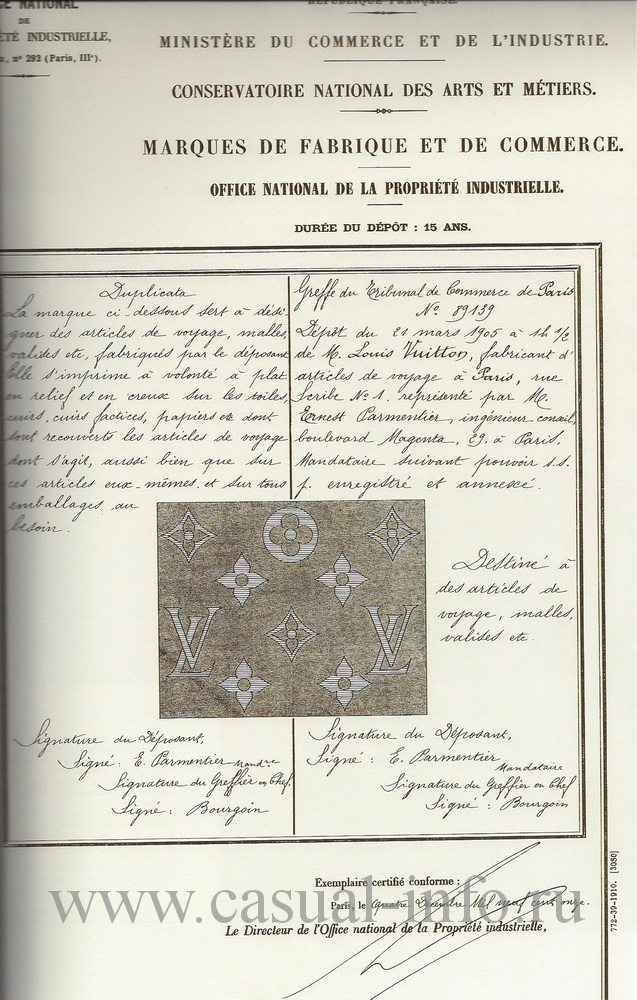 CE NATIONAL
DE
ÉTÉ INDUSTRIELLE,
n, nº 292 (Paris, IIIe).
RÉPUBLIQUE FRANÇAISE.
MINISTÈRE DU COMMERCE ET DE L'INDUSTRIE.
CONSERVATOIRE NATIONAL DES ARTS ET MÉTIERS.
MARQUES DE FABRIQUE ET DE COMMERCE.
OFFICE NATIONAL DE LA PROPRIÉTÉ INDUSTRIELLE.
DURÉE DU DÉPÔT : 15 ANS.
Duplicata
La marque ci-dessous sert à dési-
gner des articles de voyage, malles,
valises etc, fabriqués par le déposant
Elle s'imprime à volonté à plat
en relief et en creux sur les toiles,
cuirs, cuirs factices, papiers etc dont
sont recouverts les articles de voyage
dont s'agit, aussi bien que sur
ces articles eux-mêmes et sur tous
emballages au
besoin.
Greffe du Tribunal de Commerce de Paris
Nº 89139
Dépôt du 21 mars 1905 à 1h 1/2
de M. Louis Vuitton, fabricant d'
articles de voyage à Paris, rue
Scribe Nº 1. représenté par M.
Ernest Parmentier, ingénieur conseil,
boulevard Magenta, 29, à Paris,
Mandataire suivant pouvoir s.s.
p. enregistré et annexé.
LV
LV
Destiné à
des articles de
voyage, malles,
valises etc.
Signature du Déposant,
Signé : E. Parmentier Mandre
Signature du Greffier en Chef,
Signé : Bourgoin
Signature du Déposant,
Signé : E. Parmentier
Mandataire
Signature du Greffier en Chef
Signé : Bourgoin
Exemplaire certifié conforme :
Paris, le quatre Décembre Mil neuf cent onze.
Le Directeur de l'Office national de la Propriété industrielle,
772-39-1910. [3080]
www.casual-info.ru